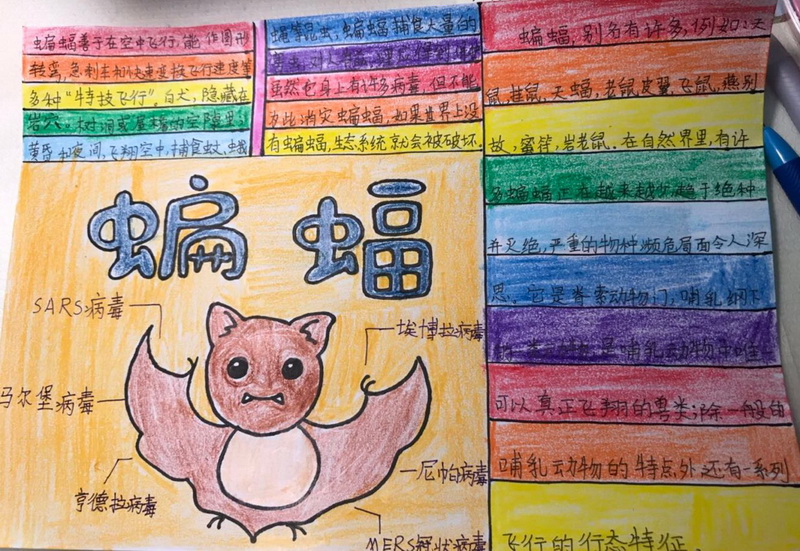 蝙蝠善于在空中飞行,能作圆形
转弯,急刹车和快速变换飞行速度等
多种“特技飞行”.白天,隐藏在
岩穴.树洞或屋檐的空隙里;
黄昏和夜间,飞翔空中,捕食蚊、蛾
蝇等昆虫,蝙蝠捕食大量的
害虫,对人有益,理应得到保护
虽然它身上有许多病毒.但不能
为此消灭蝙蝠,如果世界上没
有蝙蝠,生态系统就会被破坏.
蝙蝠
SARS病毒
马尔堡病毒
亨德拉病毒
埃博拉病毒
尼帕病毒
MERS冠状病毒
蝙蝠,别名有许多,例如:天
鼠,挂鼠,天蝠,老鼠皮翼,飞鼠,燕别
故,蜜符,岩老鼠.在自然界里,有许
多蝙蝠正在越来越少,趋于绝种
并灭绝,严重的物种濒危局面令人深
思.它是脊索动物门,哺乳纲下
是哺乳动物中唯一
可以真正飞翔的兽类;除一般的
哺乳动物的特点外,还有一系列
飞行的行态特征.